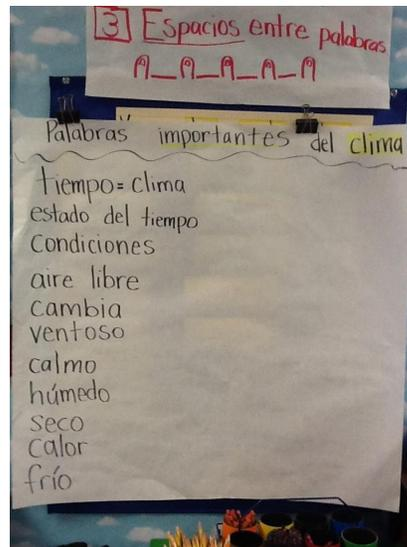 3 Espacios entre palabras
Palabras importantes del clima
tiempo = clima
estado del tiempo
condiciones
aire libre
cambia
ventoso
calmo
húmedo
seco
calor
frío